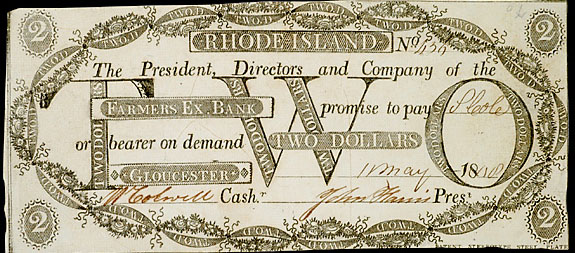 2 TWO.D TWO.D TWO.D TWO.D 2
RHODE ISLAND No
The President, Directors and Company of the
FARMERS EX. BANK promise to pay S. Cole
or bearer on demand TWO DOLLARS
GLOUCESTER 11 May 18
TWO
TWO DOLLARS
W Colwell Cash.r John Harris Pres.t
2 TWO.D TWO.D TWO.D TWO.D 2
PATENT STEREOTYPE STEEL PLATE